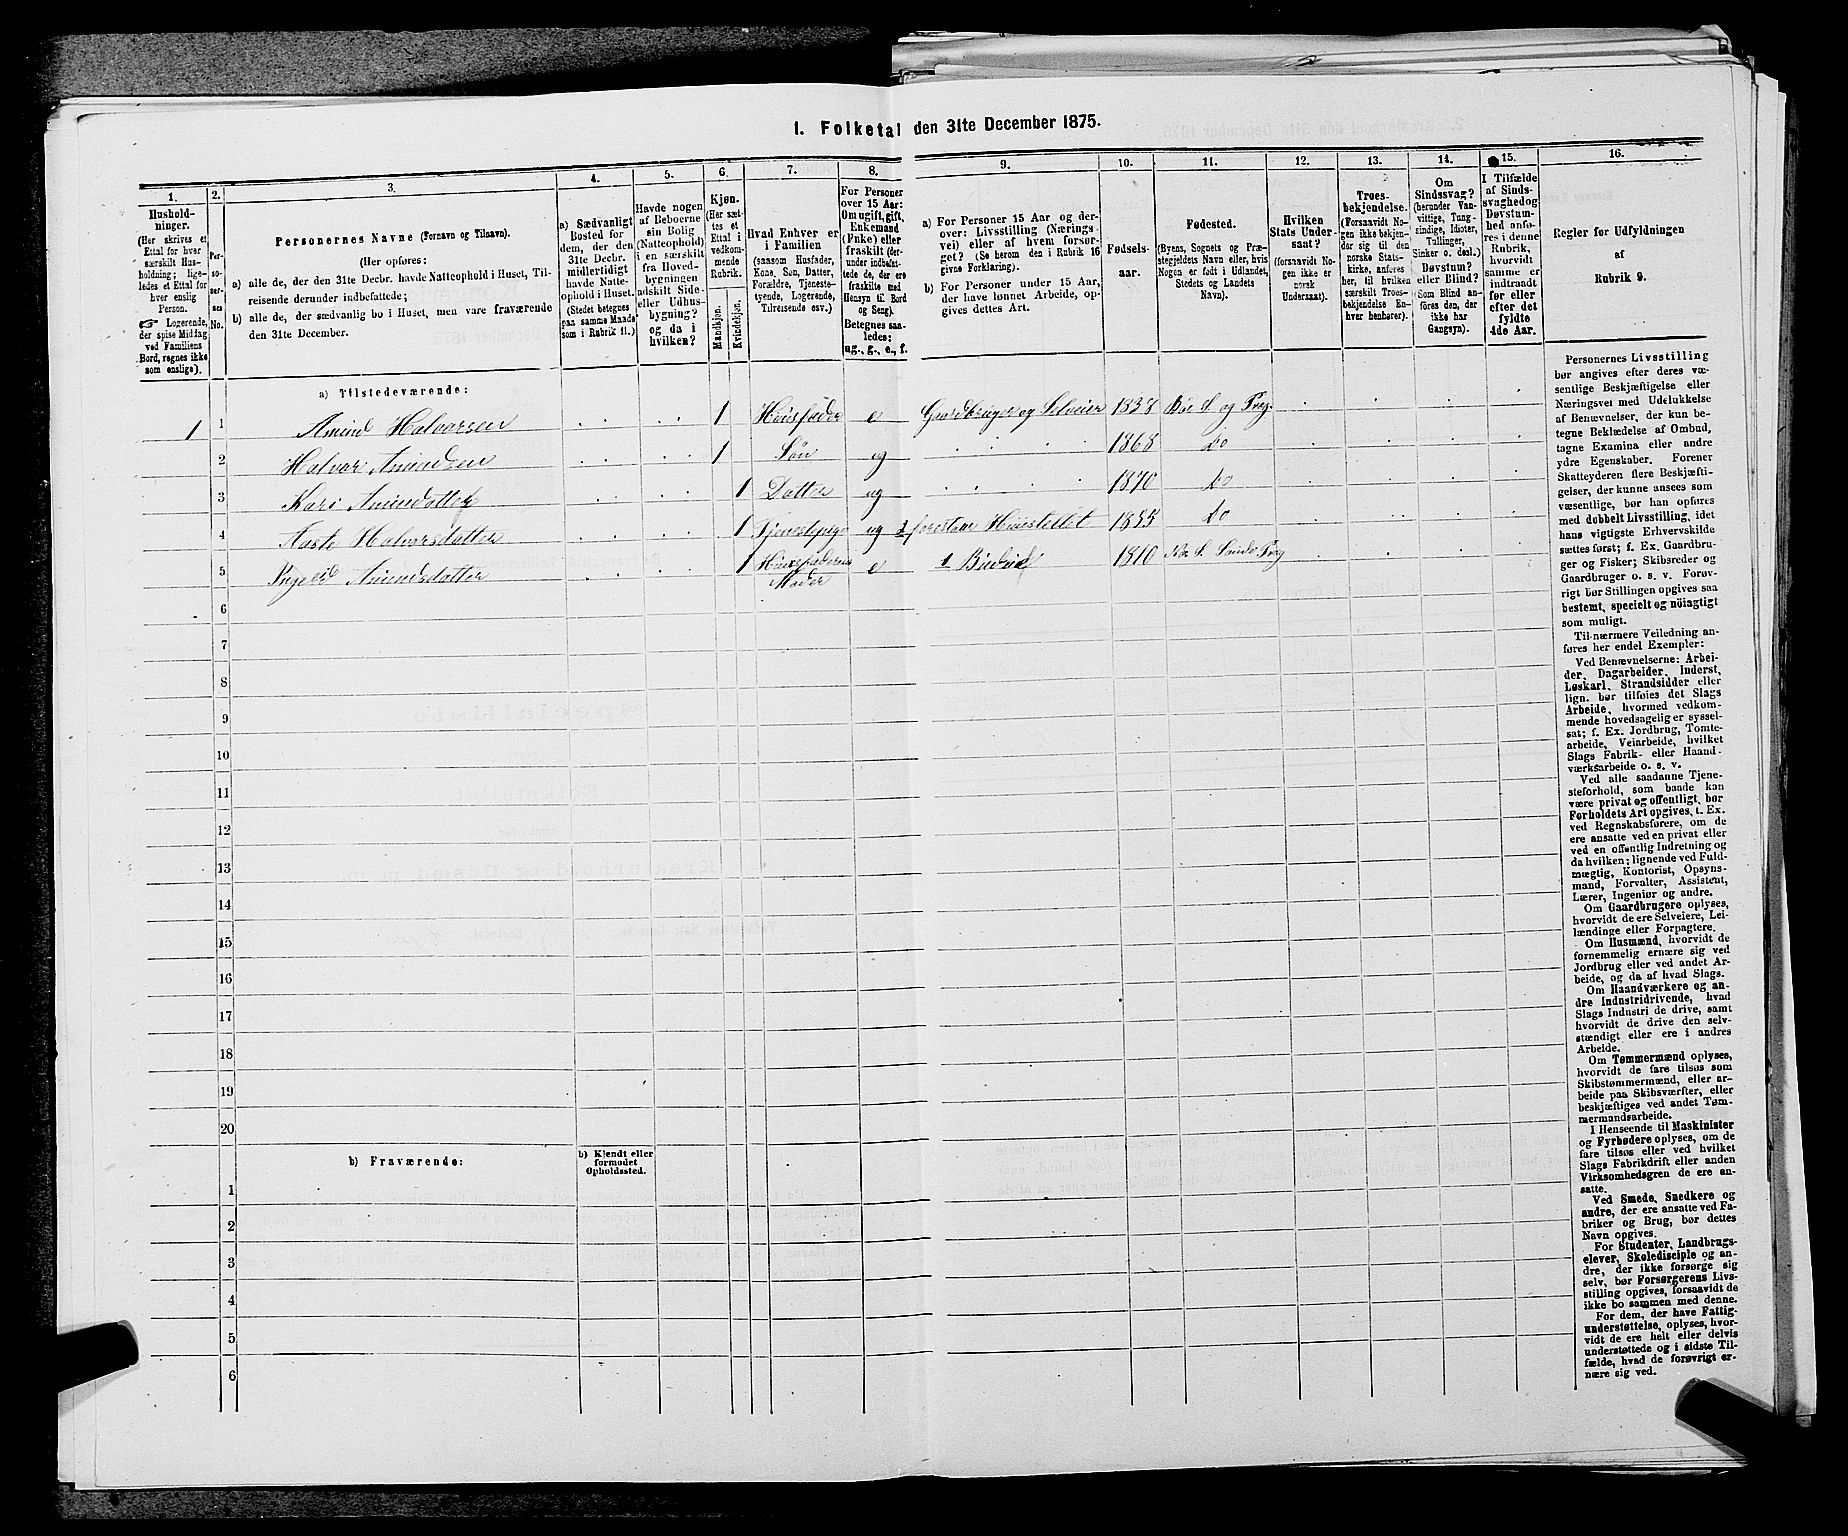 1. Folketal den 31te December 1875.
1.
2.
3.
4.
5.
6.
7.
8.
9.
10.
11.
12.
13.
14.
15.
16.
Hushold-
ninger.
(Her skrives et
Ettal for hver
særskilt Hus-
holdning; lige-
ledes et Ettal for
hver enslig
Person.
☞ Logerende,
der spise Middag
ved Familiens
Bord, regnes ikke
som enslige).
Per-
so-
ner-
nes
No.
Personernes Navne (Fornavn og Tilnavn).
(Her opføres:
a) alle de, der den 31te Decbr. havde Natteophold i Huset, Til-
reisende derunder indbefattede;
b) alle de, der sædvanlig bo i Huset, men vare fraværende
den 31te December.
a) Sædvanligt
Bosted for
dem, der den
31te Decbr.
midlertidigt
havde Natte-
ophold i Huset.
(Stedet betegnes
paa samme Maade
som i Rubrik 11.)
Havde nogen
af Beboerne
sin Bolig
(Natteophold)
i en særskilt
fra Hoved-
bygningen
adskilt Side-
eller Udhus-
bygning?
og da i
hvilken?
Kjøn.
(Her sæt-
tes et
Ettal i
vedkom-
mende
Rubrik.
Mandkjøn.
Kvindekjøn.
Hvad Enhver er
i Familien
(saasom Husfader,
Kone, Søn, Datter,
Forældre, Tjeneste-
tyende, Logerende,
Tilreisende osv.)
For Personer
over 15 Aar:
Om ugift, gift,
Enkemand
(Enke) eller
fraskilt (der-
under indbefat-
tede de, der ere
fraskilte med
Hensyn til Bord
og Seng).
Betegnes saa-
ledes:
ug., g., e., f.
a) For Personer 15 Aar og der-
over: Livsstilling (Nærings-
vei) eller af hvem forsør-
get? (Se herom den i Rubrik 16
givne Forklaring).
b) For Personer under 15 Aar,
der have lønnet Arbeide, op-
gives dettes Art.
Fødsels-
aar.
Fødested.
(Byens, Sognets og Præ-
stegjeldets Navn eller, hvis
Nogen er født i Udlandet,
Stedets og Landets
Navn).
Hvilken
Stats Under-
saat?
(forsaavidt No-
gen ikke er
norsk
Undersaat).
Troes-
bekjendelse.
(Forsaavidt No-
gen ikke bekjen-
der sig til den
norske Stats-
kirke, anføres
her, til hvilken
særskilt Troes-
bekjendelse En-
hver henhører).
Om
Sindssvag?
(herunder Van-
vittige, Tung-
sindige, Idioter,
Tullinger,
Sinker o. desl.)
Døvstum?
eller Blind?
(Som Blind an-
føres den, der
ikke har
Gangsyn).
I Tilfælde
af Sinds-
svaghed og
Døvstum-
hed anfø-
res i denne
Rubrik,
hvorvidt
samme er
indtraadt
før eller
efter det
fyldte
4de Aar.
Regler for Udfyldningen
af
Rubrik 9.
a) Tilstedeværende:
1 1 Amund Halvorsen 1 Huusfader e Gaardbruger og Selveier 1838 Bøe S. og Prg.
2 Halvor Amundsen 1 Søn ug 1868 do
3 Kari Amundatter 1 Datter ug 1870 do
4 Aaste Halvorsdatter 1 Tjenestepige ug forestaar Huustellet 1855 do
5 Ingebid Amundsdatter 1 Huusfaderens e 1810
Moder
6
7
8
9
10
11
12
13
14
15
16
17
18
19
20
b) Fraværende:
b) Kjendt eller
formodet
Opholdssted.
1
2
3
4
5
6
Personernes Livsstilling
bør angives efter deres væ-
sentlige Beskjæftigelse eller
Næringsvei med Udelukkelse
af Benævnelser, der kun be-
tegne Beklædelse af Ombud,
tagne Examina eller andre
ydre Egenskaber. Forener
Skatteyderen flere Beskjæfti-
gelser, der kunne ansees som
væsentlige, bør han opføres
med dobbelt Livsstilling, idet
hans vigtigste Erhvervskilde
sættes først; f. Ex. Gaardbru-
ger og Fisker; Skibsreder og
Gaardbruger o. s. v. Forøv-
rigt bør Stillingen opgives saa
bestemt, specielt og nöiagtigt
som muligt.
Til nærmere Veiledning an-
føres her endel Exempler:
Ved Benævnelserne: Arbei-
der, Dagarbeider, Inderst,
Løskarl, Strandsidder eller
lign. bør tilføies det Slags
Arbeide, hvormed vedkom-
mende hovedsagelig er syssel-
sat; f. Ex. Jordbrug, Tomte-
arbeide, Veiarbeide, hvilket
Slags Fabrik- eller Haand-
værksarbeide o. s. v.
Ved alle saadanne Tjene-
steforhold, som baade kan
være privat og offentligt, bør
Forholdets Art opgives, t. Ex.
ved Regnskabsførere, om de
ere ansatte ved en privat eller
ved en offentlig Indretning og
da hvilken; lignende ved Fuld-
mægtig, Kontorist, Opsyns-
mand, Forvalter, Assistent,
Lærer, Ingeniør og andre.
Om Gaardbrugere oplyses,
hvorvidt de ere Selveiere, Lei-
lændinge eller Forpagtere.
Om Husmænd, hvorvidt de
fornemmelig ernære sig ved
Jordbrug eller ved andet Ar-
beide, og da af hvad Slags.
Om Haandværkere og an-
dre Industridrivende, hvad
Slags Industri de drive, samt
hvorvidt de drive den selv-
stændigt eller ere i andres
Arbeide.
Om Tømmermænd oplyses,
hvorvidt de fare tilsøs som
Skibstømmermænd, eller ar-
beide paa Skibsværfter, eller
beskjæftiges ved andet Tøm-
mermandsarbeide.
I Henseende til Maskinister
og Fyrbødere oplyses, om de
fare tilsøs eller ved hvilket
Slags Fabrikdrift eller anden
Virksomhedsgren de ere an-
satte.
Ved Smede, Snedkere og
andre, der ere ansatte ved Fa-
briker og Brug, bør dettes
Navn opgives.
For Studenter, Landbrugs-
elever, Skoledisciple og an-
dre, der ikke forsørge sig
selv, bør Forsørgerens Livs-
stilling opgives, forsaavidt de
ikke bo sammen med denne.
For dem, der have Fattig-
understøttelse, oplyses, hvor-
vidt de ere helt eller delvis
understøttede og i sidste Til-
fælde, hvad de forøvrigt er-
nære sig ved.